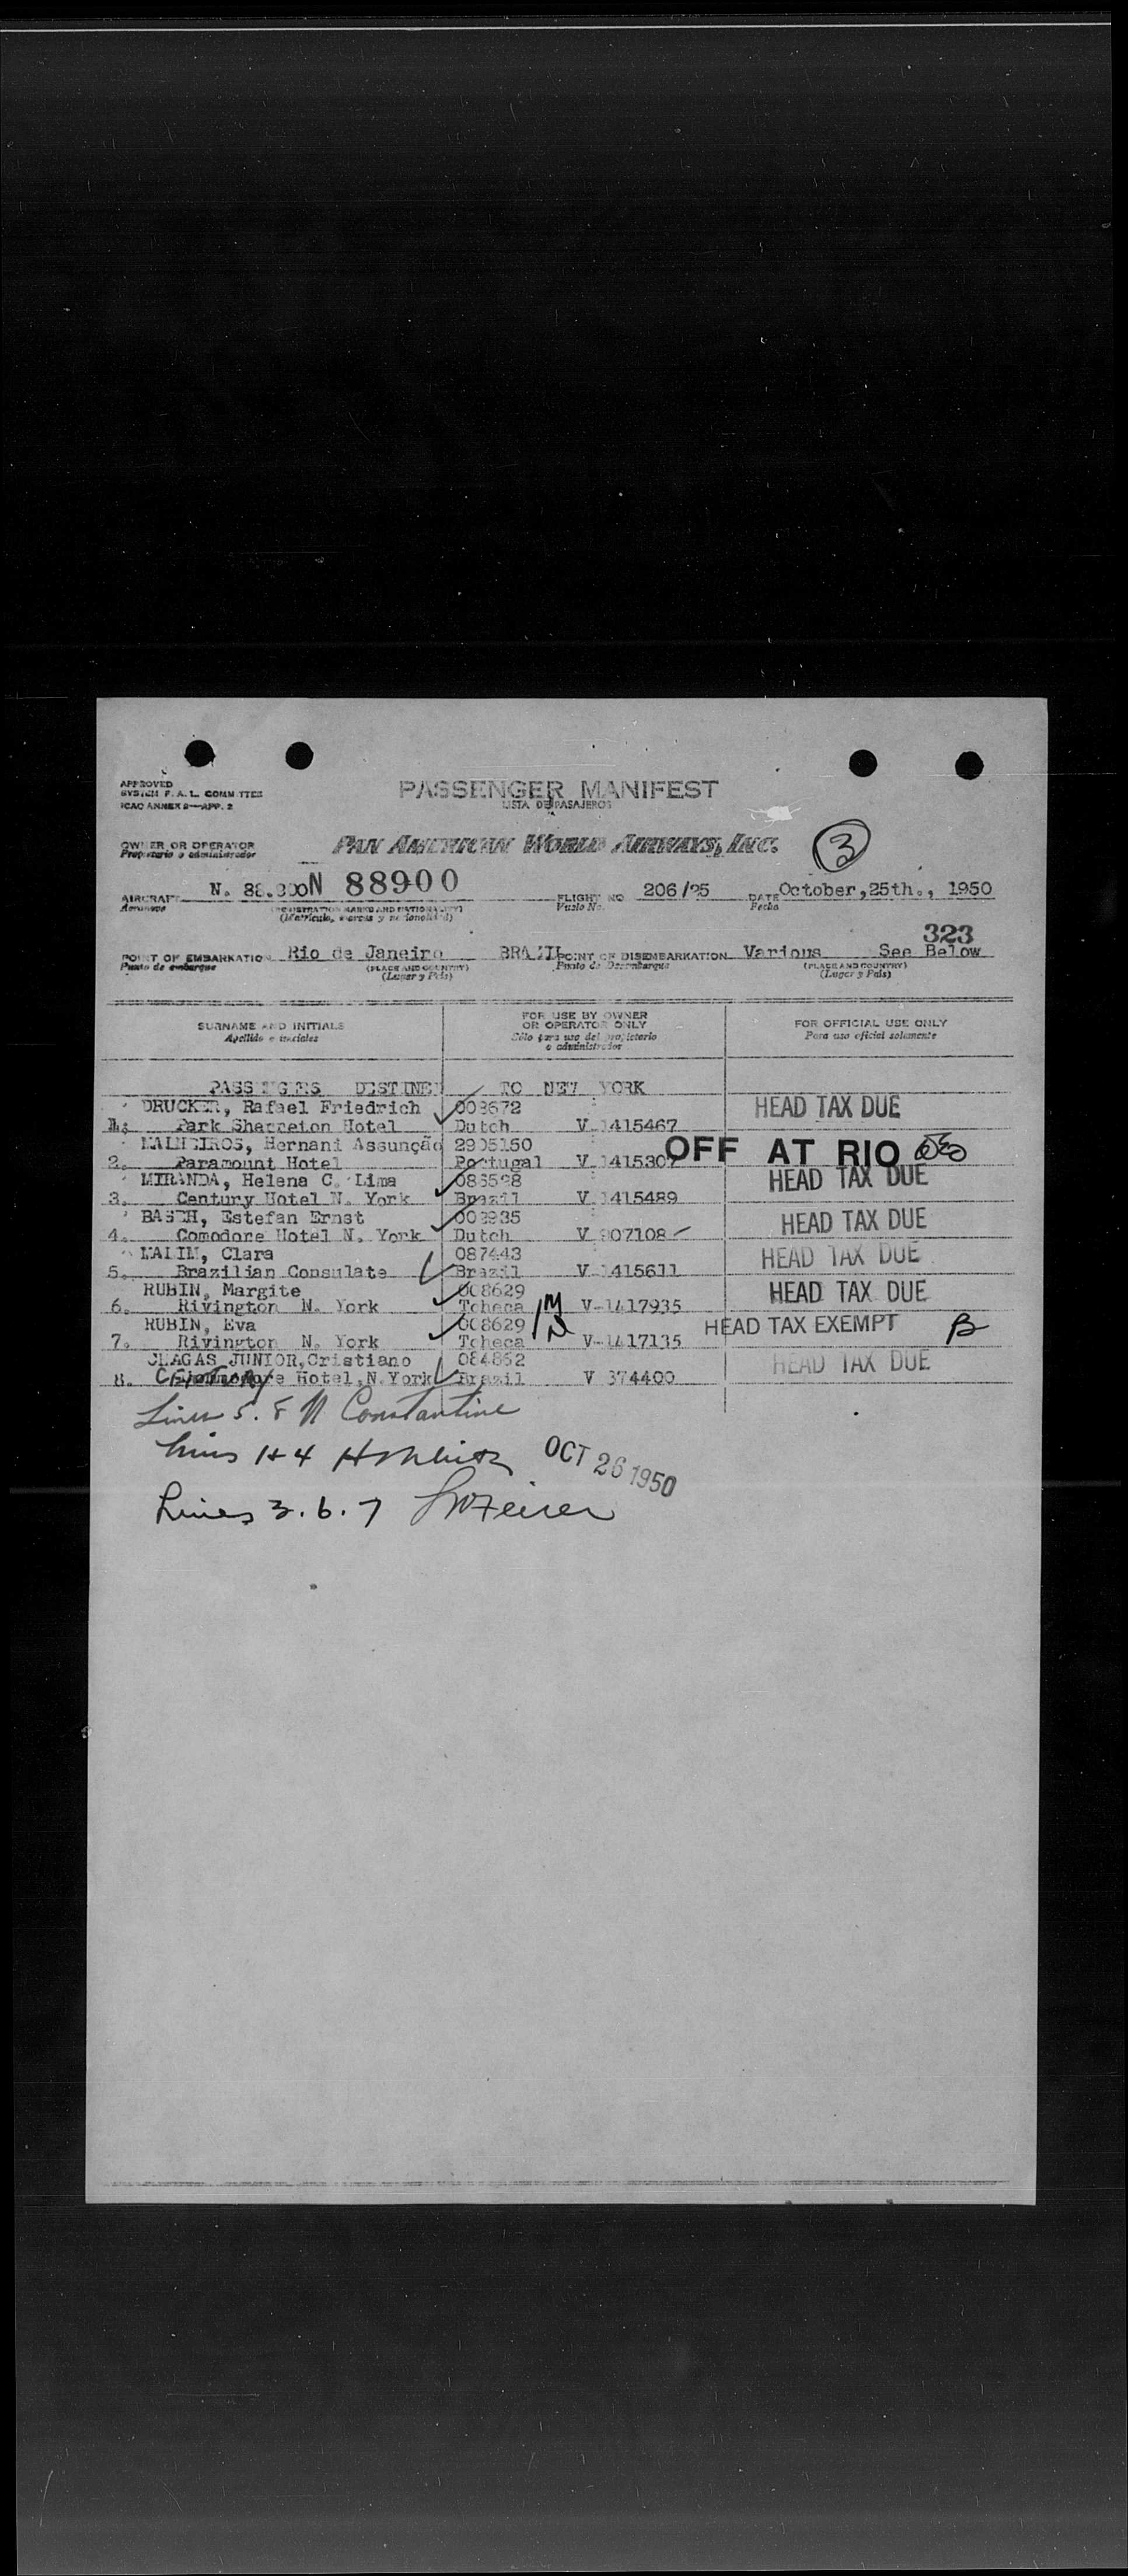 APPROVED
SYSTEM F. A. L. COMMITTEE
ICAO ANNEX 9—APP. 2
PASSENGER MANIFEST
LISTA DE PASAJEROS
OWNER OR OPERATOR
Propietario o administrador
PAN AMERICAN WORLD AIRWAYS, INC.
3
AIRCRAFT N. 88.900 N 88900 FLIGHT NO 206/25 DATE October,25th., 1950
Aeronave (REGISTRATION MARKS AND NATIONALITY) Vuelo No. Fecha
(Matrícula, marcas y nacionalidad)
323
POINT OF EMBARKATION Rio de Janeiro BRAZIL POINT OF DISEMBARKATION Various See Below
Punto de embarque (PLACE AND COUNTRY) Punto de Desembarque (PLACE AND COUNTRY)
(Lugar y País) (Lugar y País)
SURNAME AND INITIALS FOR USE BY OWNER OR OPERATOR ONLY FOR OFFICIAL USE ONLY
Apellido e iniciales Sólo para uso del propietario o administrador Para uso oficial solamente
PASSENGERS DESTINED TO NEW YORK
DRUCKER, Rafael Friedrich 003672 HEAD TAX DUE
1. Park Sharreton Hotel Dutch V 1415467
MALHEIROS, Hernani Assunção 2905150 OFF AT RIO
2. Paramount Hotel Portugal V 1415307
MIRANDA, Helena C. Lima 086598 HEAD TAX DUE
3. Century Hotel N. York Brazil V 1415489
BASCH, Estefan Ernst 003935 HEAD TAX DUE
4. Comodore Hotel N. York Dutch V 907108
Clara 087443 HEAD TAX DUE
5. Brazilian Consulate Brazil V 1415611
RUBIN, Margite 008629 HEAD TAX DUE
6. Rivington N. York Tcheca M V-1417935
RUBIN, Eva 008629 N HEAD TAX EXEMPT B
7. Rivington N. York Tcheca V-1417135
CHAGAS JUNIOR,Cristiano 084862 HEAD TAX DUE
8. Century Hotel,N.York Brazil V 374400
Lines 5. 8 N Constantine
Lines 1+4
OCT 26 1950
Lines 3. 6. 7